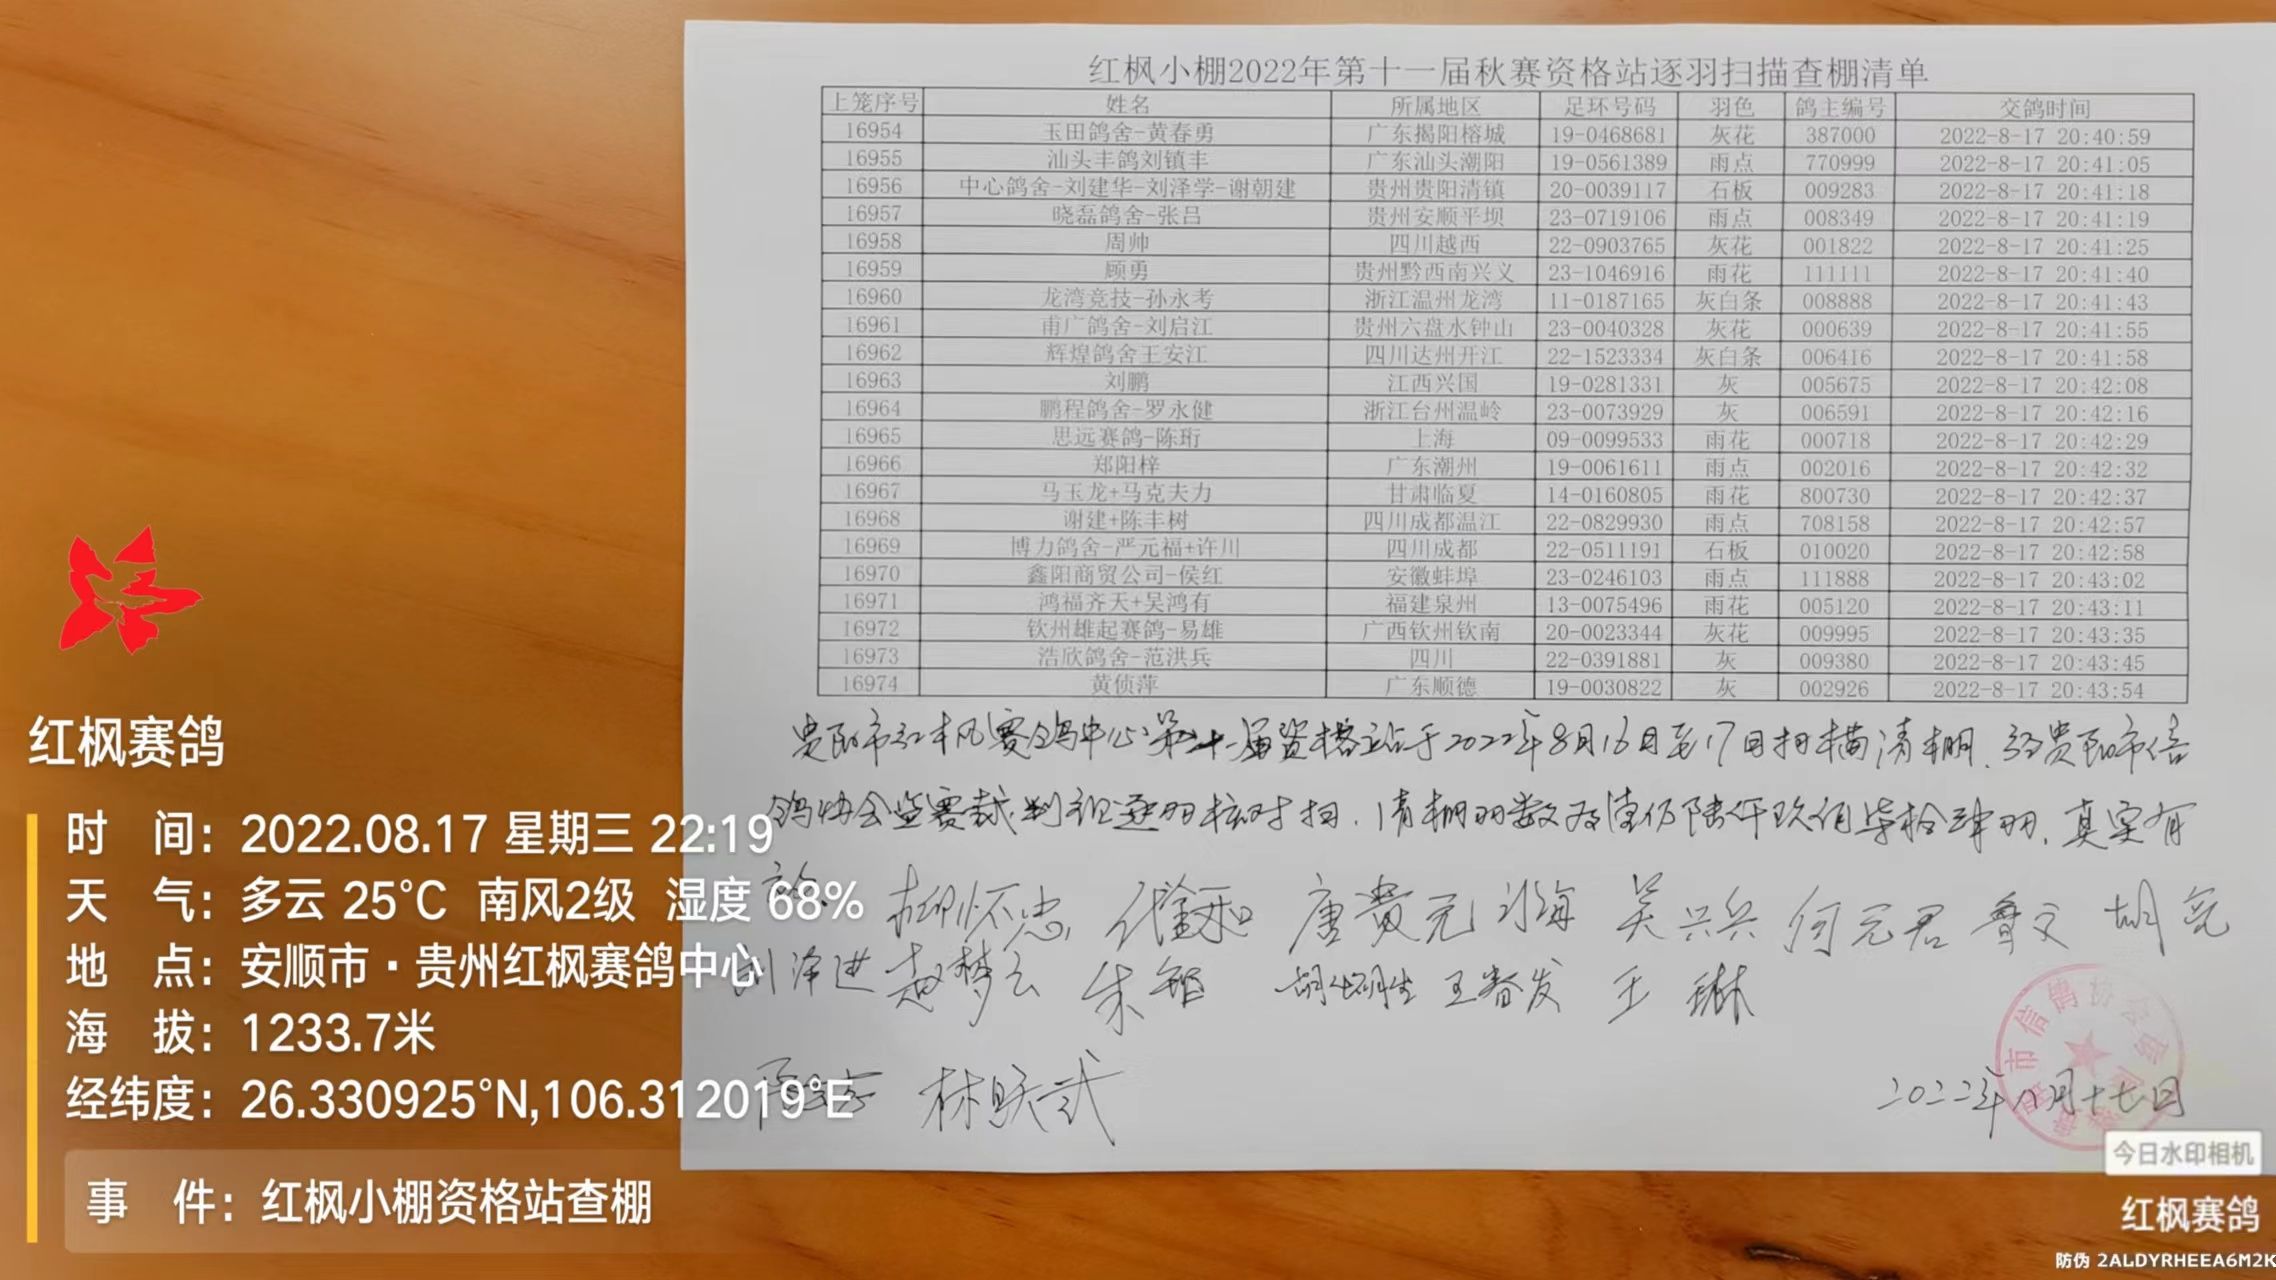 红枫小棚2022年第十一届秋赛资格站逐羽扫描查棚清单
上笼序号 姓名 所属地区 足环号码 羽色 鸽主编号 交鸽时间
16954 玉田鸽舍-黄春勇 广东揭阳榕城 19-0468681 灰花 387000 2022-8-17 20:40:59
16955 汕头丰鸽刘镇丰 广东汕头潮阳 19-0561389 雨点 770999 2022-8-17 20:41:05
16956 中心鸽舍-刘建华-刘泽学-谢朝建 贵州贵阳清镇 20-0039117 石板 009283 2022-8-17 20:41:18
16957 晓磊鸽舍-张吕 贵州安顺平坝 23-0719106 雨点 008349 2022-8-17 20:41:19
16958 周帅 四川越西 22-0903765 灰花 001822 2022-8-17 20:41:25
16959 顾勇 贵州黔西南兴义 23-1046916 雨花 111111 2022-8-17 20:41:40
16960 龙湾竞技-孙永考 浙江温州龙湾 11-0187165 灰白条 008888 2022-8-17 20:41:43
16961 甫广鸽舍-刘启江 贵州六盘水钟山 23-0040328 灰花 000639 2022-8-17 20:41:55
16962 辉煌鸽舍王安江 四川达州开江 22-1523334 灰白条 006416 2022-8-17 20:41:58
16963 刘鹏 江西兴国 19-0281331 灰 005675 2022-8-17 20:42:08
16964 鹏程鸽舍-罗永健 浙江台州温岭 23-0073929 灰 006591 2022-8-17 20:42:16
16965 思远赛鸽-陈珩 上海 09-0099533 雨花 000718 2022-8-17 20:42:29
16966 郑阳梓 广东潮州 19-0061611 雨点 002016 2022-8-17 20:42:32
16967 马玉龙+马克夫力 甘肃临夏 14-0160805 雨花 800730 2022-8-17 20:42:37
16968 谢建+陈丰树 四川成都温江 22-0829930 雨点 708158 2022-8-17 20:42:57
16969 博力鸽舍-严元福+许川 四川成都 22-0511191 石板 010020 2022-8-17 20:42:58
16970 鑫阳商贸公司-侯红 安徽蚌埠 23-0246103 雨点 111888 2022-8-17 20:43:02
16971 鸿福齐天+吴鸿有 福建泉州 13-0075496 雨花 005120 2022-8-17 20:43:11
16972 钦州雄起赛鸽-易雄 广西钦州钦南 20-0023344 灰花 009995 2022-8-17 20:43:35
16973 浩欣鸽舍-范洪兵 四川 22-0391881 灰 009380 2022-8-17 20:43:45
16974 黄侦萍 广东顺德 19-0030822 灰 002926 2022-8-17 20:43:54
贵阳市红枫赛鸽中心第十一届资格站于2022年8月16日至17日扫描清棚,经贵阳市信
鸽协会监赛裁判组逐羽核对扫,清棚羽数为壹万陆仟玖佰柒拾肆羽,真实有
效 柳怀忠 代金和 唐贵元 吴兴兵 何元君 鲁文 胡亮
刘泽进 赵梦云 朱韬 胡炳生 王春发 王琳
林跃武
2022年八月十七日
市信鸽协会
红枫赛鸽
时 间:2022.08.17 星期三 22:19
天 气:多云 25°C 南风2级 湿度 68%
地 点:安顺市·贵州红枫赛鸽中心
海 拔:1233.7米
经纬度:26.330925°N,106.312019°E
事 件:红枫小棚资格站查棚
今日水印相机
红枫赛鸽
防伪 2ALDYRHEEA6M2K